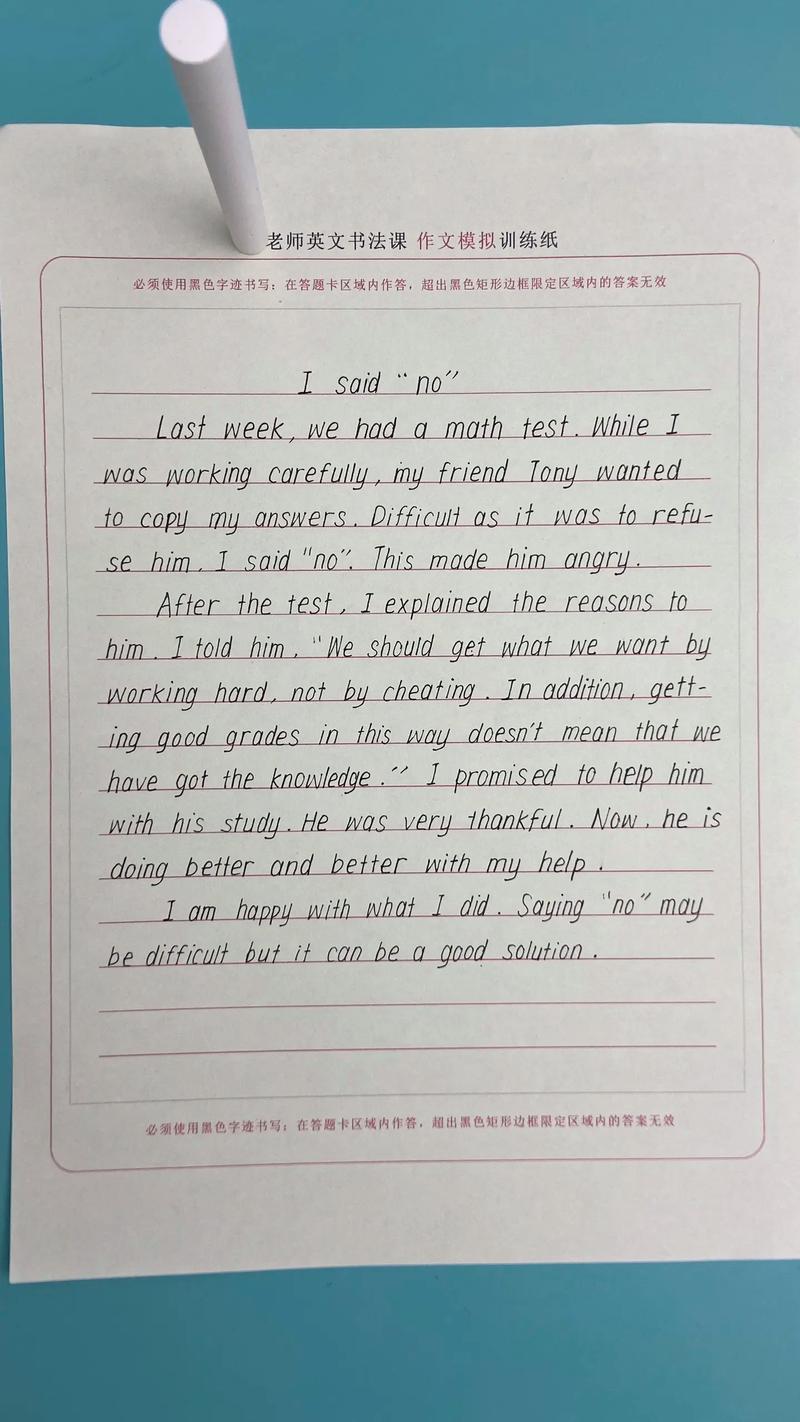 老师英文书法课 作文模拟训练纸
必须使用黑色字迹书写：在答题卡区域内作答，超出黑色矩形边框限定区域内的答案无效
I said “no”
Last week, we had a math test. While I
was working carefully, my friend Tony wanted
to copy my answers. Difficult as it was to refu-
se him, I said “no”. This made him angry.
After the test, I explained the reasons to
him. I told him, “We should get what we want by
working hard, not by cheating. In addition, gett-
ing good grades in this way doesn't mean that we
have got the knowledge.” I promised to help him
with his study. He was very thankful. Now, he is
doing better and better with my help.
I am happy with what I did. Saying “no” may
be difficult but it can be a good solution.
必须使用黑色字迹书写；在答题卡区域内作答，超出黑色矩形边框限定区域内的答案无效